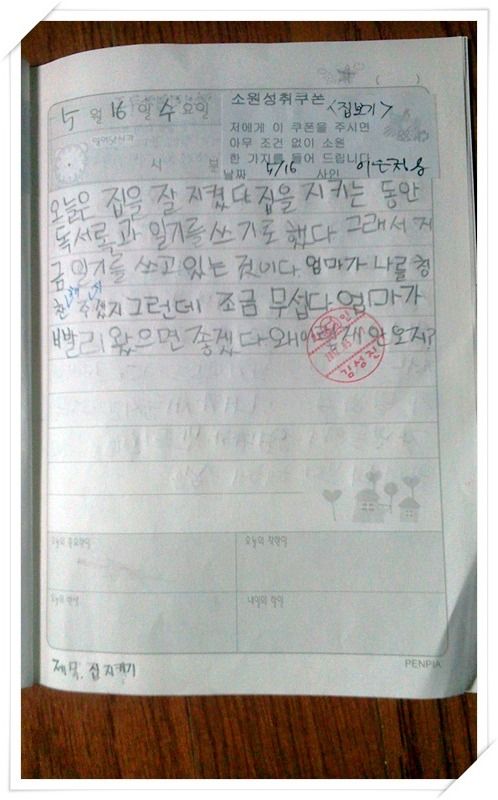 5 월 16 일 수 요일
소원성취쿠폰
<집보기>
저에게 이 쿠폰을 주시면
아무 조건 없이 소원
한 가지를 들어 드립니다
날짜 5/16 사인
시 분
오늘은 집을 잘 지켰다 집을 지키는 동안
독서록과 일기를 쓰기로 했다 그래서 지
금 일기를 쓰고 있는 것이다 엄마가 나를 칭
찬 주겠지 그런데 조금 무섭다 엄마가
빨리 왔으면 좋겠다 왜 안 오지?
김성진
오늘의 중요한일
오늘의 착한일
오늘의 반성
내일의 할일
제목. 집 지키기
PENPIA